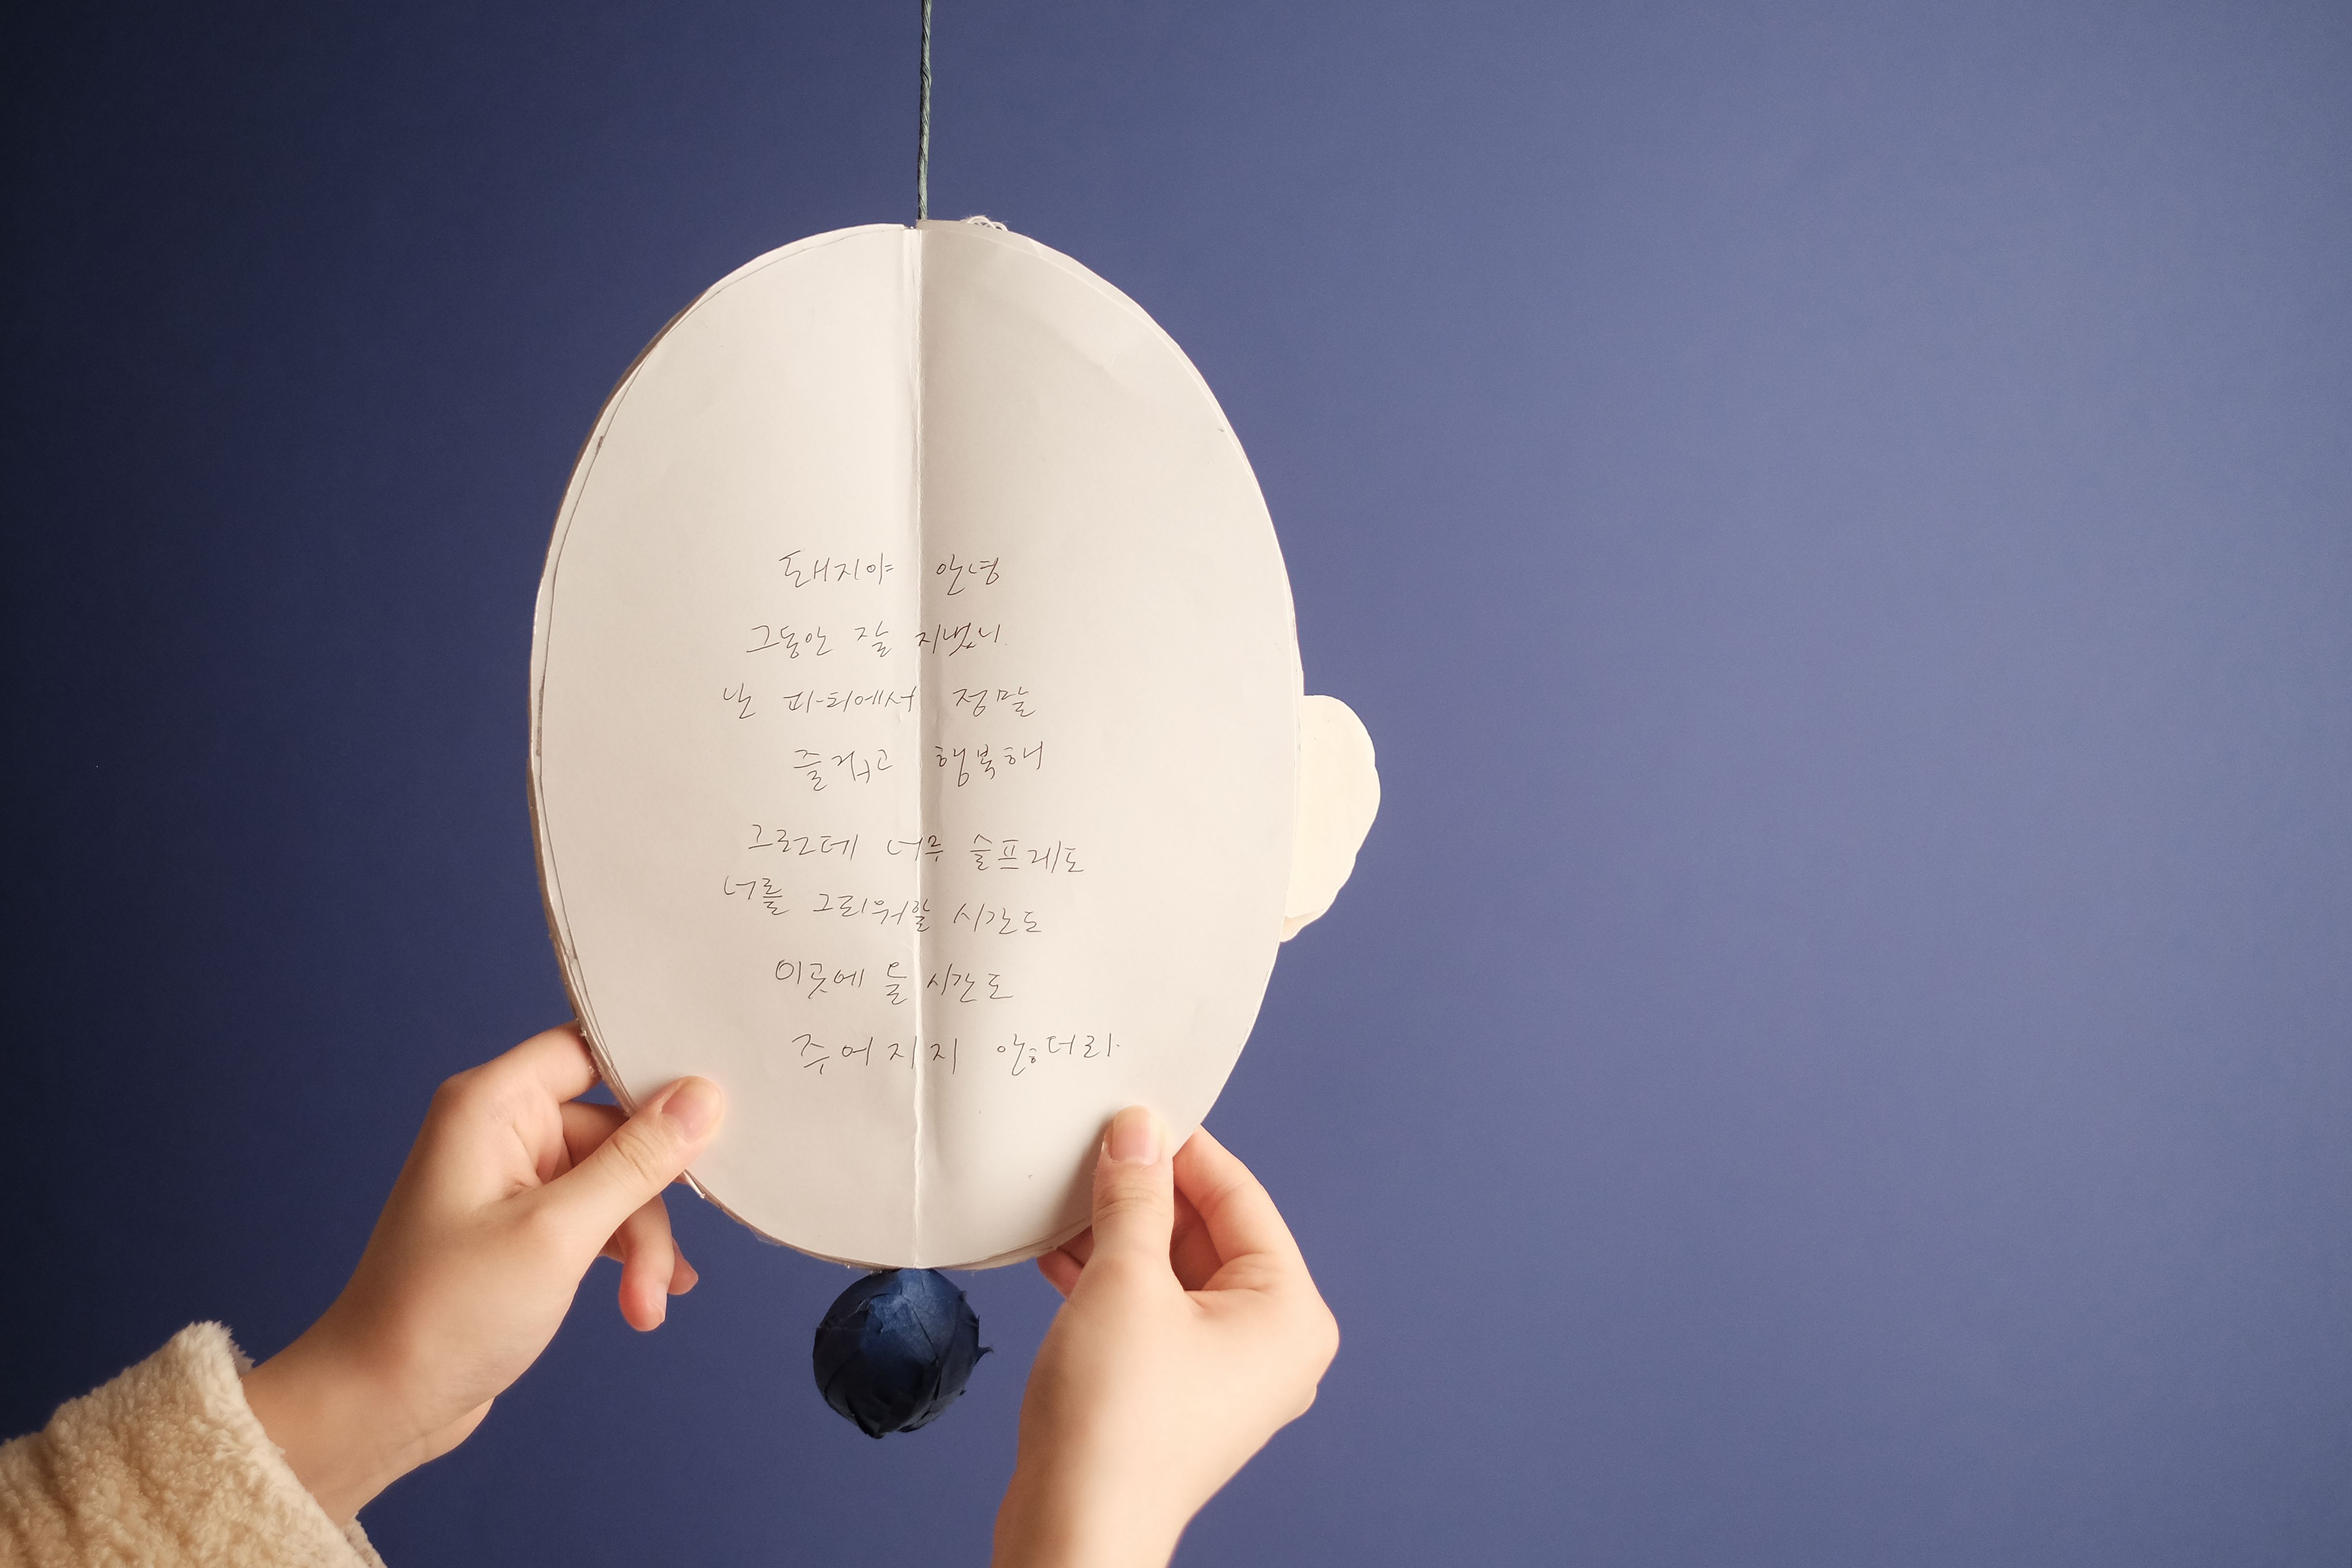 돼지야 안녕
그동안 잘 지냈니
난 파티에서 정말
즐겁고 행복해
그런데 너무 슬프게도
너를 그리워할 시간도
이곳에 올 시간도
주어지지 않더라